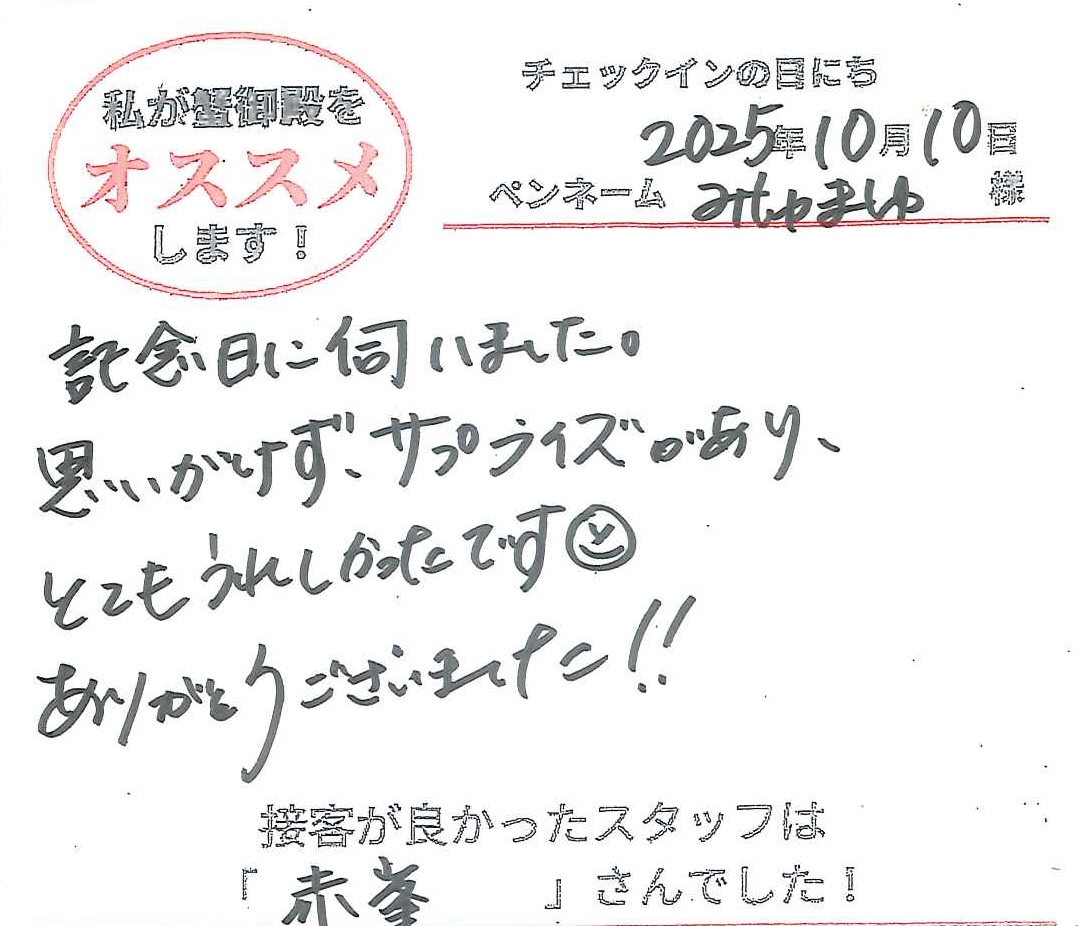 私が蟹御殿を
オススメ
します！
チェックインの日にち
2025年10月10日
ペンネーム みちゅましゅ 様
記念日に伺いました。
思いがけず、サプライズがあり、
とてもうれしかったです
ありがとうございました!!
接客が良かったスタッフは
「 赤峯 」さんでした！